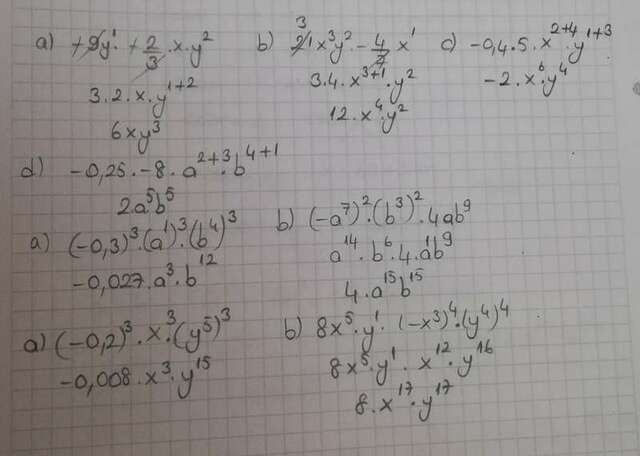 a) +9y¹ · + 2/3 · x · y²
3 · 2 · x · y¹⁺²
6xy³
b) 3 21 x³y² · - 4/7 x¹
3 · 4 · x³⁺¹ · y²
12 · x⁴ · y²
c) -0,4 · 5 · x²⁺⁴ · y¹⁺³
-2 · x⁶ · y⁴
d) -0,25 · -8 · a²⁺³ · b⁴⁺¹
2a⁵b⁵
a) (-0,3)³ · (a¹)³ · (b⁴)³
-0,027 · a³ · b¹²
b) (-a⁷)² · (b³)² · 4ab⁹
a¹⁴ · b⁶ · 4 · a¹b⁹
4 · a¹⁵b¹⁵
a) (-0,2)³ · x³ · (y⁵)³
-0,008 · x³ · y¹⁵
b) 8x⁵ · y¹ · (-x³)⁴ · (y⁴)⁴
8x⁵ · y¹ · x¹² · y¹⁶
8 · x¹⁷ · y¹⁷